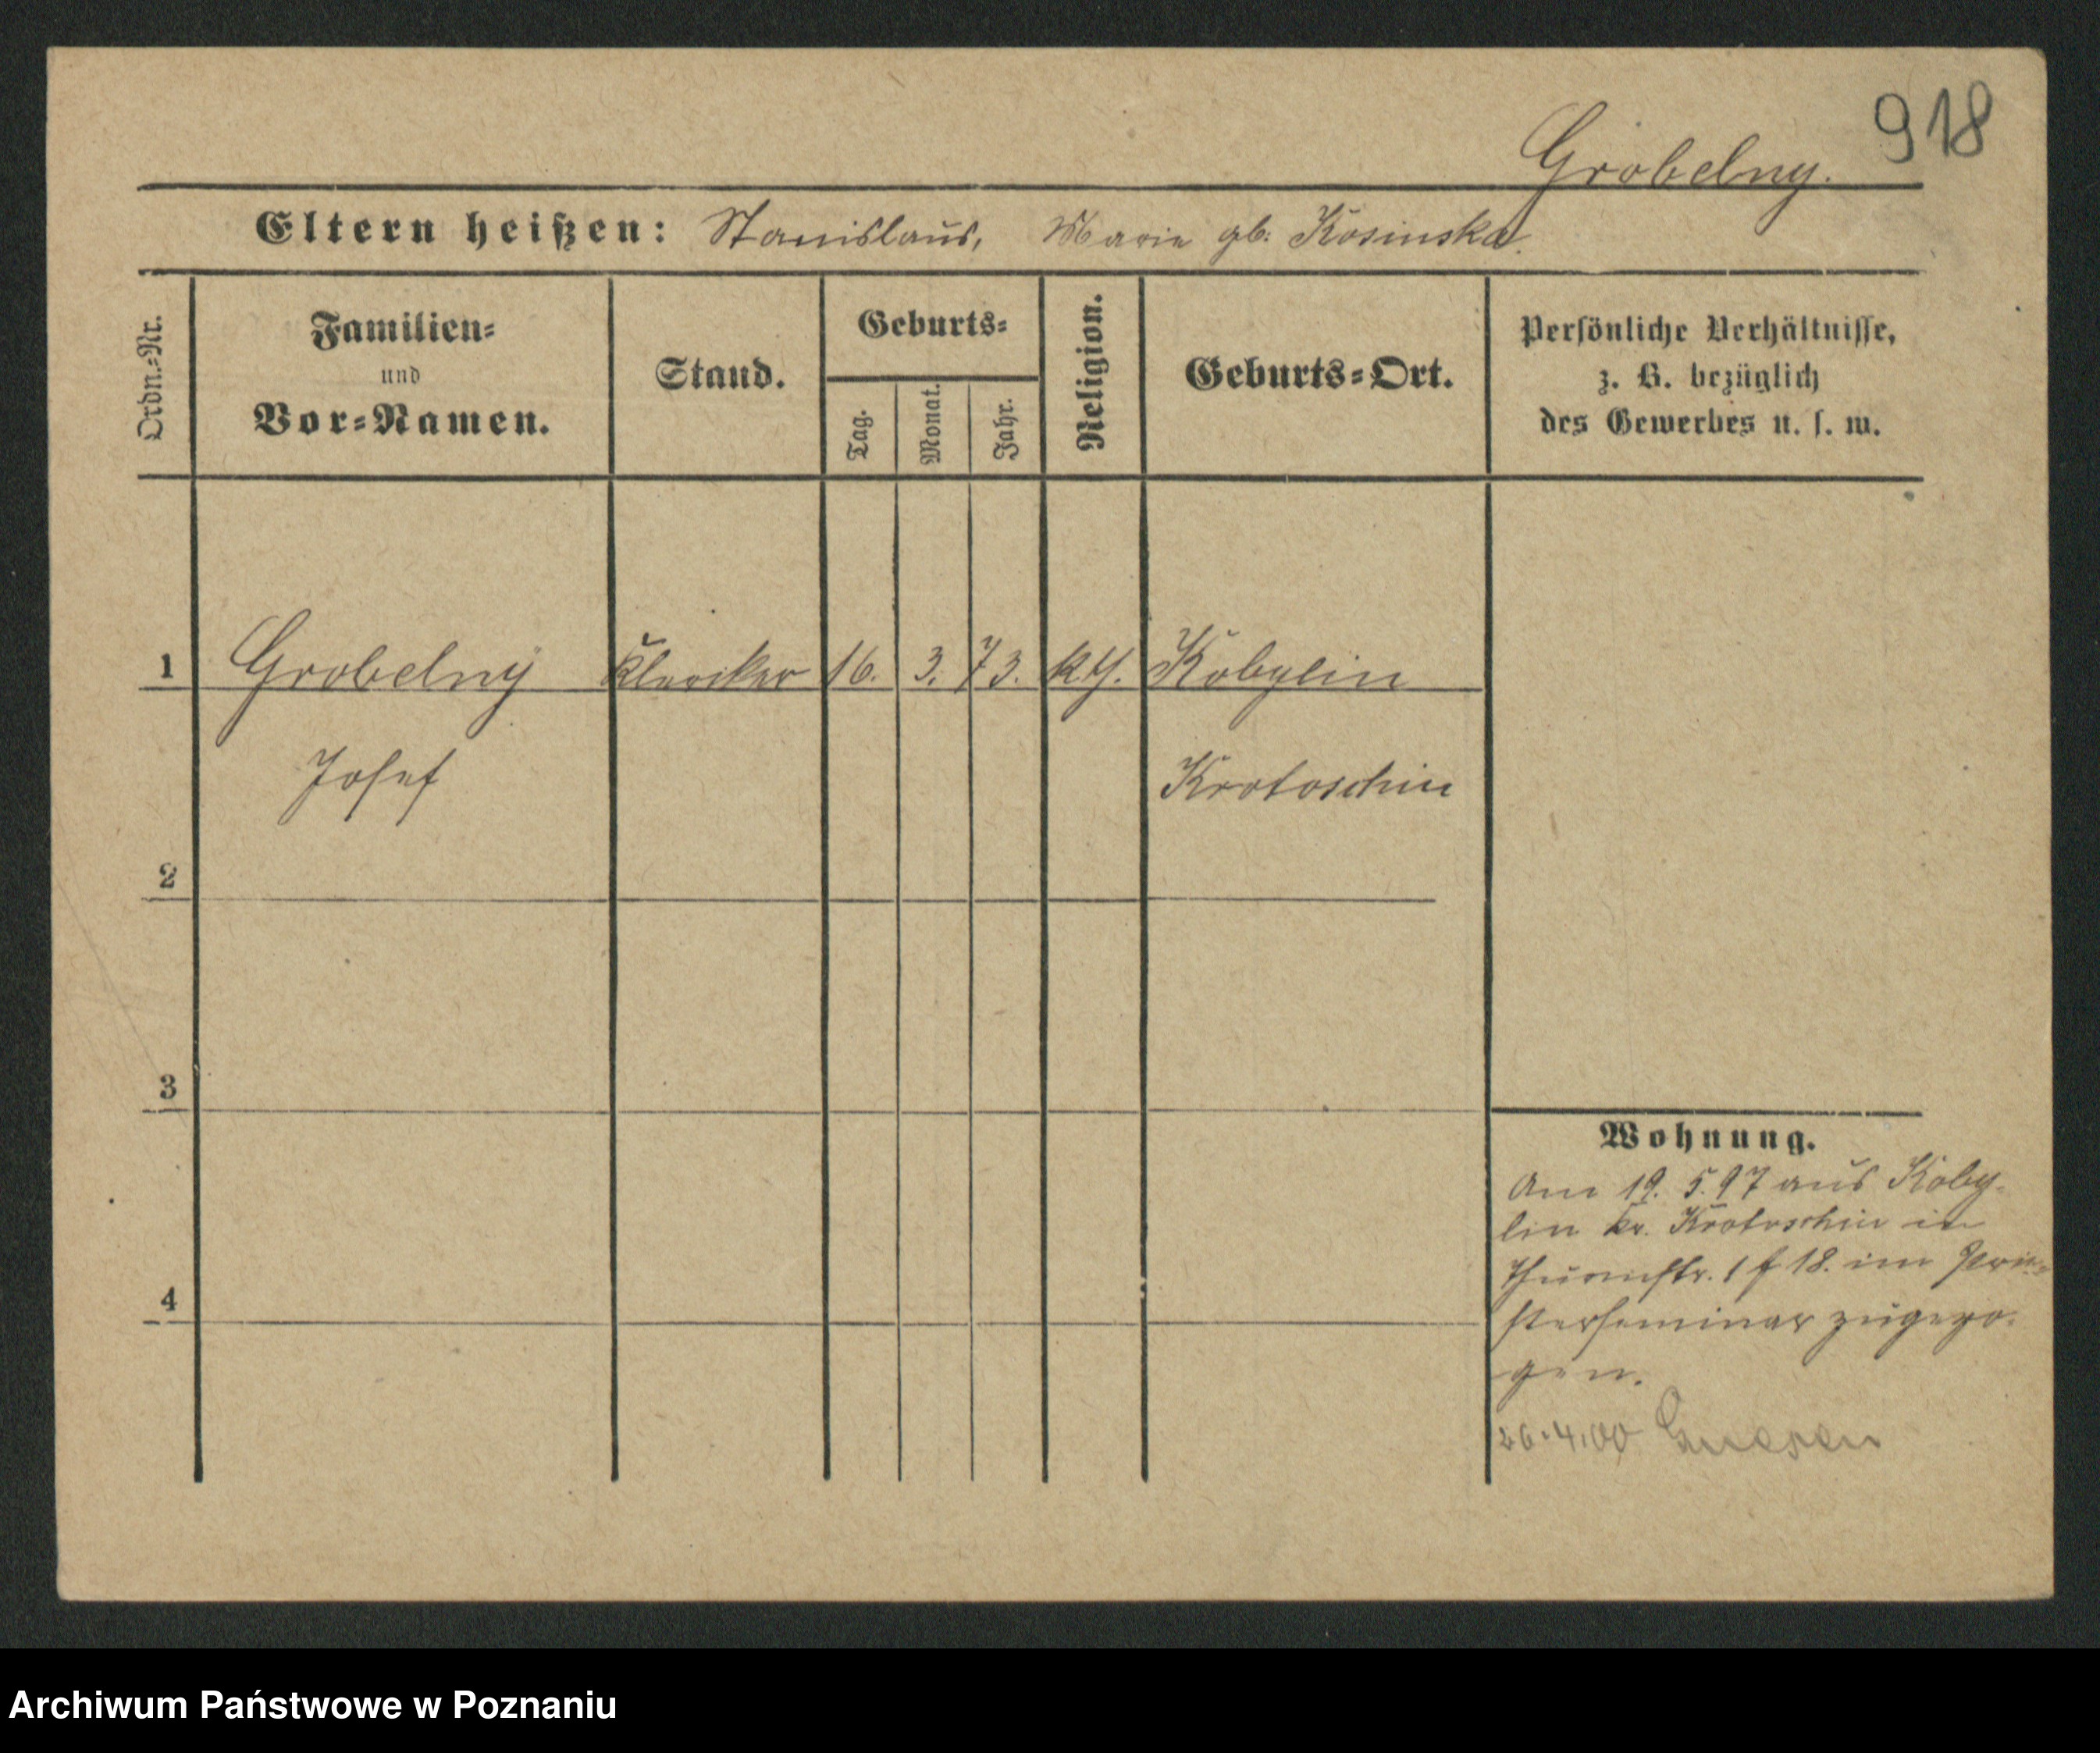 918
Grobelny.
Eltern heißen: Stanislaus, Marie gb: Kosinska
Ordn.=Nr.
Familien=
und
Vor=Namen.
Stand.
Geburts=
Tag.
Monat.
Jahr.
Religion.
Geburts=Ort.
Persönliche Verhältnisse,
z. B. bezüglich
des Gewerbes u. s. w.
1 Grobelny Kleriker 16. 3. 73. kth. Kobylin
Josef Krotoschin
2
3
4
Wohnung.
Am 19. 5. 97 aus Koby-
lin Kr. Krotoschin in
18. im Prie-
sterseminar zugezo-
gen.
26.4.00 Gnesen
Archiwum Państwowe w Poznaniu